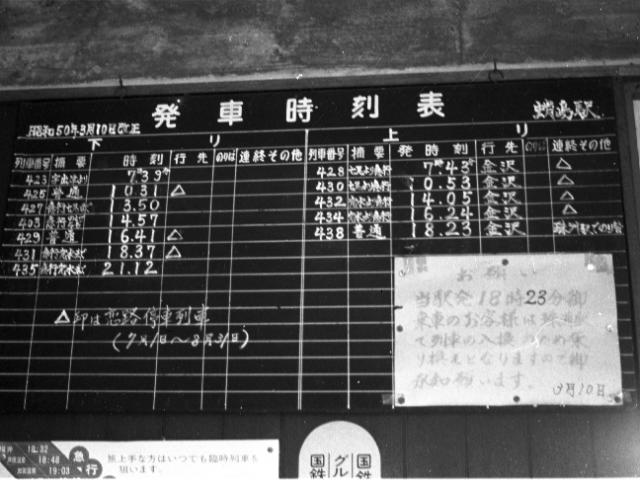 発車時刻表
蛸島駅
昭和50年3月10日改正
下り
上り
列車番号 摘要 時刻 行先 のりば 連絡その他
列車番号 摘要 発時刻 行先 のりば 連絡その他
423 7.39
425 普通 10.31 △
427 13.50
14.57
429 普通 16.41 △
431 18.37 △
435 21.12
428 7.43 金沢 △
430 10.53 金沢 △
432 14.05 金沢 △
434 16.24 金沢 △
438 普通 18.23 金沢
△印は恋路停車列車
(7月1日〜8月31日)
お願い
当駅発18時23分御
乗車のお客様は珠洲駅
て列車の入換のため乗
り換えとなりますので御
承知願います。
3月10日
18:32
18:48
19:03
急行
旅上手な方はいつでも臨時列車を
狙います。
国鉄
グル
国鉄